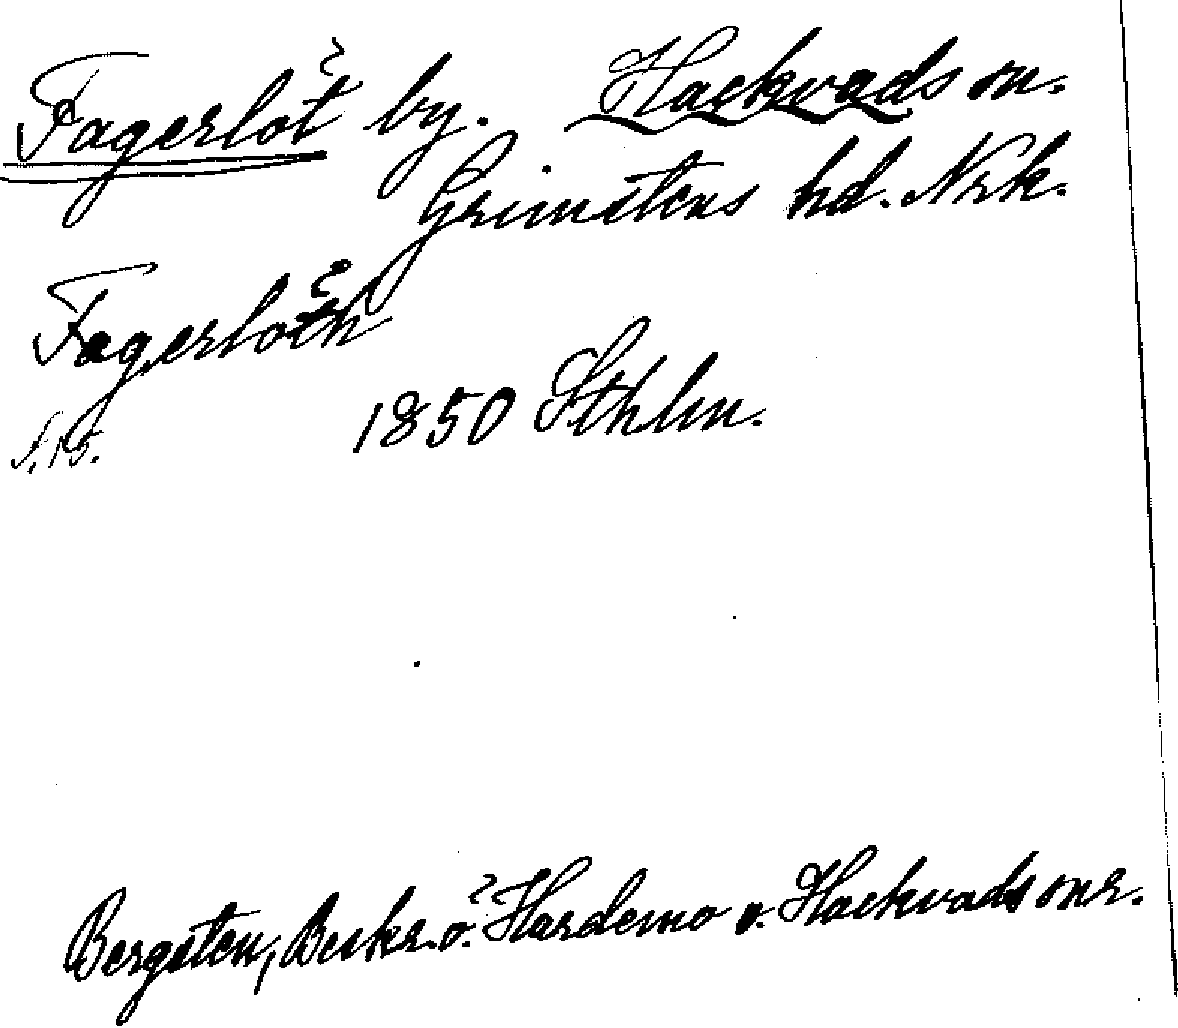 Fagerlöt by. Hackvads sn.
Grimstens hd. Nrk.
Fagerlöth
1850 Sthlm.
Bergsten, Beskr. ö. Hardemo o. Hackvads snr.